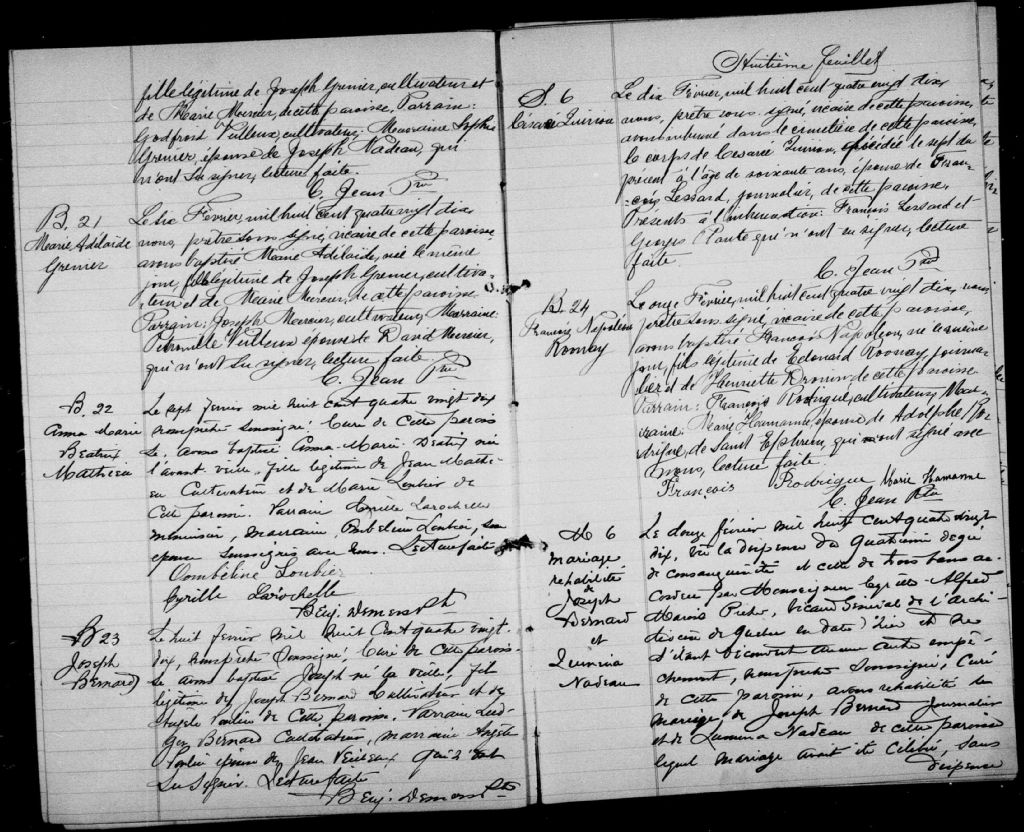 fille légitime de Joseph Grenier, cultivateur et
de Marie Mercier, de cette paroisse, Parrain:
Godfroid Veilleux, cultivateur; Marraine Sophie
Grenier, épouse de Joseph Nadeau, qui
n'ont su signer, lecture faite.
C. Jean Ptre
B. 21
Marie Adélaïde
Grenier
Le dix Fevrier, mil huit cent quatre vingt dix,
nous, prêtre sous signé, vicaire de cette paroisse,
avons baptisé Marie Adélaïde, née le même
jour, fille légitime de Joseph Grenier, cultiva-
teur et de Marie Mercier, de cette paroisse
Parrain: Joseph Mercier, cultivateur, Marraine:
Pétronille Veilleux épouse de David Mercier,
qui n'ont su signer, lecture faite.
C. Jean Ptre
B. 22
Anna Marie
Beatrix
Mathieu
Le sept fevrier mil huit cent quatre vingt dix
nous prêtre soussigné Curé de Cette parois
se, avons baptisé Anna Marie Beatrix née
l'avant veille, fille legitime de Jean Mathi-
eu Cultivateur et de Marie Loubier de
Cette paroisse. Parrain Cyrille Larochelle
menuisier, marraine Ombeline Loubier, son
epouse Soussignés avec nous. Lecture faite
Oombéline Loubier
Cyrille Larochelle
Benj. Demers Ptr
B 23
Joseph
Bernard
Le huit fevrier mil huit Cent quatre vingt-
dix, nous prêtre Soussigné, Curé de Cette parois-
se avons baptisé Joseph né la veille, fils
légitime de Joseph Bernard Cultivateur et de
Angèle Poulin de Cette paroisse. Parrain Lud-
ger Bernard Cultivateur, marraine Angèle
Poulin epouse de Jean Veilleux qui n'ont
Su Signer. Lecture faite
Benj. Demers Ptr
Huitième feuillet
S. 6
Césarie Quirion
Le dix Fevrier, mil huit cent quatre vingt dix,
nous, prêtre sous signé, vicaire de cette paroisse,
avons inhumé dans le cimetière de cette paroisse,
le corps de Cesarie Quirion, décédée le sept du
présent à l'âge de soixante ans, épouse de Fran-
çois Lessard, journalier, de cette paroisse.
Présents à l'inhumation: François Lessard et
Georges Plante qui n'ont su signer, lecture
faite.
C. Jean Ptre
B. 24
François Napoléon
Roonay
Le onze Fevrier, mil huit cent quatre vingt dix, nous
prêtre sous signé, vicaire de cette paroisse,
avons baptisé François Napoléon, né le même
jour, fils légitime de Edouard Roonay journa-
lier et de Henriette Drouin de cette paroisse
Parrain: François Rodrigue, cultivateur, Mar-
raine: Marie Hamanne, épouse de Adolphe Ro-
drigue, de Saint Ephrem, qui ont signé avec
nous, lecture faite.
François Rodrigue Marie Hamanne
C. Jean Ptre
M 6
Mariage
rehabilité
de
Joseph
Bernard
et
Lumina
Nadeau
Le douze fevrier mil huit Cent quatre vingt
dix, vu la dispense du quatrième degré
de consanguinité et celle de trois bans ac-
cordée par Monseigneur Cyrille Alfred
Marois Prêtre, Vicaire Général de l'Archi-
diocèse de Quebec en date d'hier et ne
s'étant découvert aucun autre empê-
chement, nous prêtre Soussigné, Curé
de Cette paroisse, avons rehabilité le
mariage de Joseph Bernard Journalier
et de Lumina Nadeau de cette paroisse
lequel mariage avait été Célébré, Sans
dispense